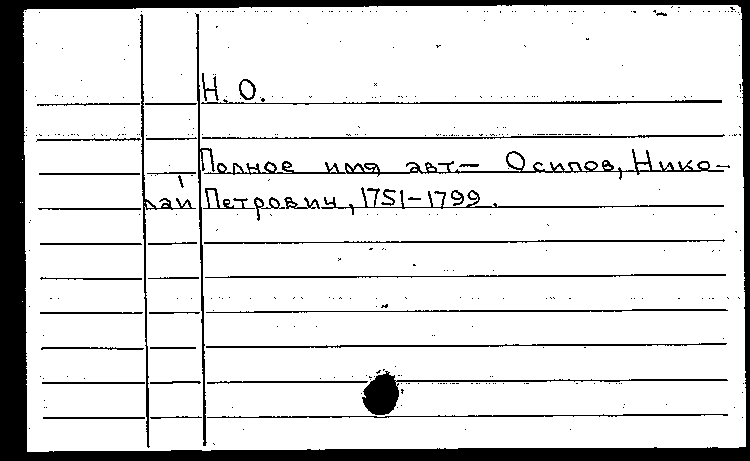 Н. О.
Полное имя авт.— Осипов, Нико-
лай Петрович, 1751–1799.